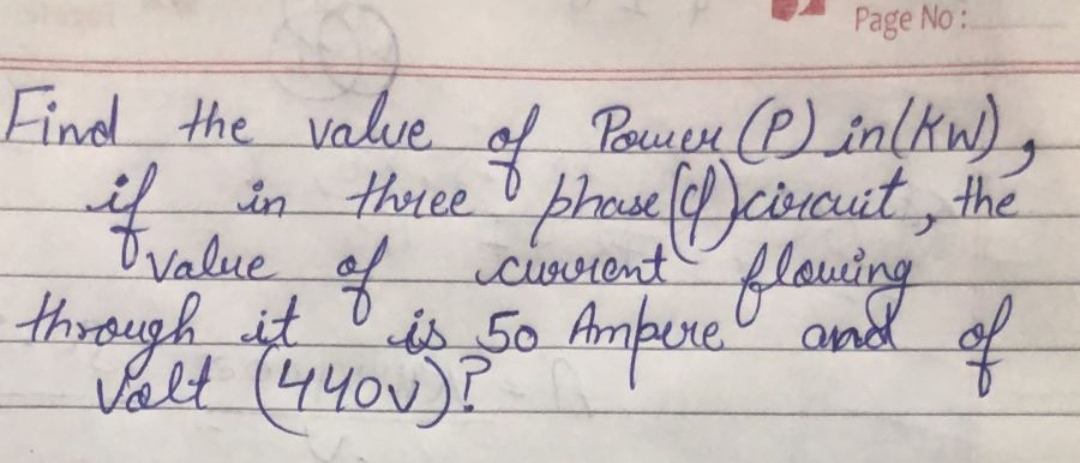 Page No :
Find the value of Power (P) in (KW),
if in three phase (φ) circuit, the
value of current flowing
through it is 50 Ampere and of
Volt (440V)?